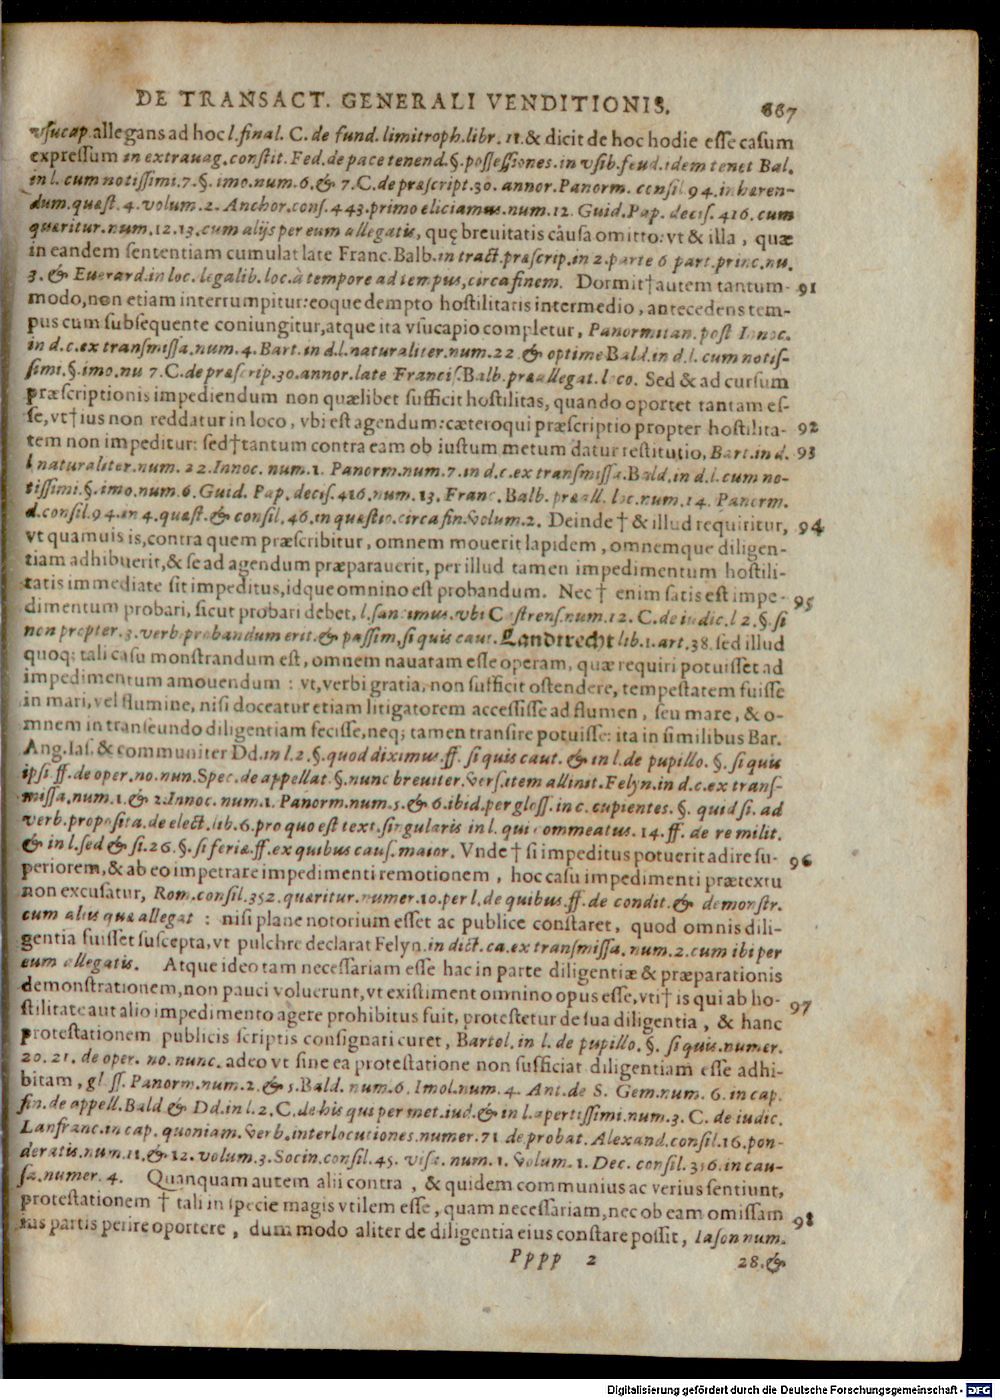 DE TRANSACT. GENERALI VENDITIONIS. 667
vsucap. allegans ad hoc l. final. C. de fund. limitroph. libr. 11. & dicit de hoc hodie esse casum
expressum in extrauag. constit. Fed. de pace tenend. §. possessiones. in vsib. feud. idem tenet Bal.
in l. cum notissimi. 7. §. imo. num. 6. & 7. C. de præscript. 30. annor. Panorm. consil 94. inhæren-
dum. quæst. 4. volum. 2. Anchor. cons. 443. primo eliciamus. num. 12. Guid. Pap. decis. 416. cum
quæritur. num. 12. 13. cum alijs per eum allegatis, quę breuitatis causa omitto: vt & illa, quæ
in eandem sententiam cumulat late Franc. Balb. in tract. præscrip. in 2. parte 6 part. princ. nu.
3. & Euerard. in loc. legalib. loc. à tempore ad tempus, circa finem. Dormit† autem tantum- 91
modo, non etiam interrumpitur: eoque dempto hostilitatis intermedio, antecedens tem-
pus cum subsequente coniungitur, atque ita vsucapio completur, Panormitan. post Innoc.
in d. c. ex transmissa. num. 4. Bart. in d. l. naturaliter. num. 22. & optime Bald. in d. l. cum notis-
simi. §. imo. nu 7. C. de præscrip. 30. annor. late Francis. Balb. præallegat. loco. Sed & ad cursum
præscriptionis impediendum non quælibet sufficit hostilitas, quando oportet tantam es-
se, vt† ius non reddatur in loco, vbi est agendum: cæteroqui præscriptio propter hostilita- 92
tem non impeditur: sed† tantum contra eam ob iustum metum datur restitutio, Bart. in d. 93
l naturaliter. num. 22. Innoc. num. 1. Panorm. num. 7. in d. c. ex transmissa. Bald. in d. l. cum no-
tissimi. §. imo. num. 6. Guid. Pap. decis. 416. num. 13. Franc. Balb. præall. loc. num. 14. Panorm.
d. consil. 94. in 4. quæst. & consil. 46. in quæstio. circa fin. volum. 2. Deinde † & illud requiritur, 94
vt quamuis is, contra quem præscribitur, omnem mouerit lapidem, omnemque diligen-
tiam adhibuerit, & se ad agendum præparauerit, per illud tamen impedimentum hostili-
tatis immediate sit impeditus, idque omnino est probandum. Nec † enim satis est impe- 95
dimentum probari, sicut probari debet, l. sancimus. vbi Castrens. num. 12. C. de iudic. l 2. §. si
non propter. 3. verb. probandum erit. & passim, si quis caut. Landtrecht lib. 1. art. 38. sed illud
quoq; tali casu monstrandum est, omnem nauatam esse operam, quæ requiri potuisset ad
impedimentum amouendum : vt, verbi gratia, non sufficit ostendere, tempestatem fuisse
in mari, vel flumine, nisi doceatur etiam litigatorem accessisse ad flumen, seu mare, & o-
mnem in transeundo diligentiam fecisse, neq; tamen transire potuisse: ita in similibus Bar.
Ang. Ias. & communiter Dd. in l. 2. §. quod diximus. ff. si quis caut. & in l. de pupillo. §. si quis
ipsi ff. de oper. no. nun. Spec. de appellat. §. nunc breuiter. versitem allinit. Felyn. in d. c. ex trans-
missa. num. 1. & 2. Innoc. num. 1. Panorm. num. 5. & 6. ibid. per gloss. in c. cupientes. §. quid si. ad
verb. proposita. de elect. lib. 6. pro quo est text. singularis in l. qui commeatus. 14. ff. de re milit.
& in l. sed & si. 26. §. si feriæ. ff. ex quibus caus. maior. Vnde † si impeditus potuerit adire su- 96
periorem, & ab eo impetrare impedimenti remotionem, hoc casu impedimenti prætextu
non excusatur, Rom. consil. 352. quæritur. numer. 10. per l. de quibus. ff. de condit. & demonstr.
cum alijs quæ allegat : nisi plane notorium esset ac publice constaret, quod omnis dili-
gentia fuisset suscepta, vt pulchre declarat Felyn. in dict. ca. ex transmissa. num. 2. cum ibi per
eum allegatis. Atque ideo tam necessariam esse hac in parte diligentiæ & præparationis
demonstrationem, non pauci voluerunt, vt existiment omnino opus esse, vti† is qui ab ho- 97
stilitate aut alio impedimento agere prohibitus fuit, protestetur de sua diligentia, & hanc
protestationem publicis scriptis consignari curet, Bartol. in l. de pupillo. §. si quis. numer.
20. 21. de oper. no. nunc. adeo vt sine ea protestatione non sufficiat diligentiam esse adhi-
bitam, gloss. Panorm. num. 2. & 5. Bald. num. 6. Imol. num. 4. Ant. de S. Gem. num. 6. in cap.
fin. de appell. Bald & Dd. in l. 2. C. de his qui per met. iud. & in l. apertissimi. num. 3. C. de iudic.
Lanfranc. in cap. quoniam. verb. interlocutiones. numer. 71 de probat. Alexand. consil. 16. pon-
deratis. num. 11. & 12. volum. 3. Socin. consil. 45. visa. num. 1. volum. 1. Dec. consil. 316. in cau-
sa. numer. 4. Quanquam autem alii contra, & quidem communius ac verius sentiunt,
protestationem † tali in specie magis vtilem esse, quam necessariam, nec ob eam omissam 98
ius partis perire oportere, dummodo aliter de diligentia eius constare possit, Iason num.
Pppp 2 28. &
Digitalisierung gefördert durch die Deutsche Forschungsgemeinschaft - DFG